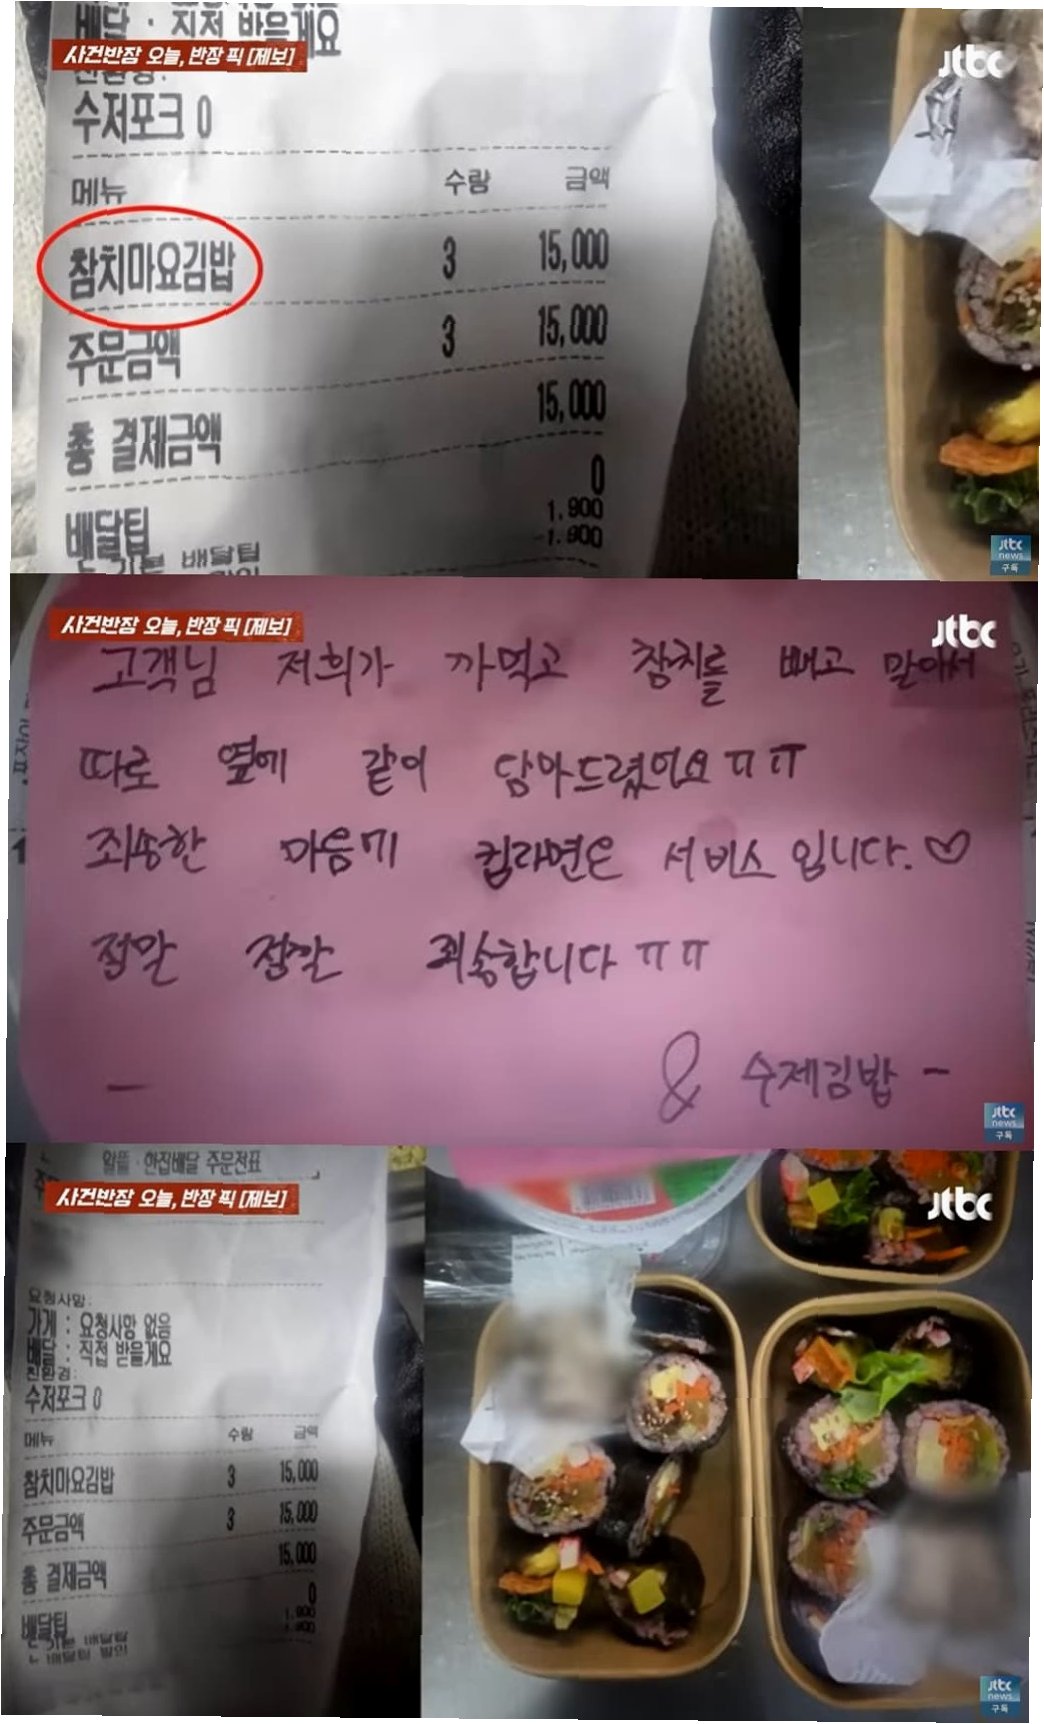 배달 : 직접 받을게요
사건반장 오늘, 반장 픽 [제보]
jtbc
친환경:
수저포크 0
메뉴 수량 금액
참치마요김밥 3 15,000
주문금액 3 15,000
총 결제금액 15,000
배달팁 0
1,900
-1,900
jtbc
news
구독
사건반장 오늘, 반장 픽 [제보]
jtbc
고객님 저희가 까먹고 참치를 빼고 말아서
따로 옆에 같이 담아드렸어요ㅠㅠ
죄송한 마음에 컵라면은 서비스 입니다.♡
정말 정말 죄송합니다ㅠㅠ
- & 수제김밥 -
jtbc
news
구독
알뜰·한집배달 주문전표
사건반장 오늘, 반장 픽 [제보]
jtbc
요청사항:
가게 : 요청사항 없음
배달 : 직접 받을게요
친환경:
수저포크 0
메뉴 수량 금액
참치마요김밥 3 15,000
주문금액 3 15,000
총 결제금액 15,000
배달팁 0
1,900
-1,900
jtbc
news
구독